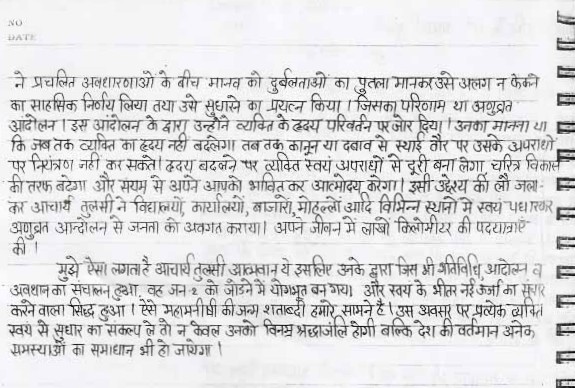 NO
DATE
ने प्रचलित अवधारणाओं के बीच मानव को दुर्बलताओं का पुतला मानकर उसे अलग न फेकने
का साहसिक निर्णय लिया तथा उसे सुधारने का प्रयत्न किया । जिसका परिणाम था अणुव्रत
आंदोलन । इस आंदोलन के द्वारा उन्होंने व्यक्ति के हृदय परिवर्तन पर जोर दिया । उनका मानना था
कि जब तक व्यक्ति का हृदय नही बदलेगा तब तक कानून या दबाव से स्थाई तौर पर उसके अपराधों
पर नियंत्रण नहीं कर सकते । हृदय बदलने पर व्यक्ति स्वयं अपराधों से दूरी बना लेगा चरित्र विकास
की तरफ बढेगा और संयम से अपने आपको भावित कर आत्मोदय करेगा । इसी उद्देश्य की लौ जला-
कर आचार्य तुलसी ने विद्यालयों, कार्यालयों, बाजारों, मोहल्लों आदि विभिन्न स्थानों में स्वयं पधारकर
अणुव्रत आन्दोलन से जनता को अवगत कराया । अपने जीवन में लाखों किलोमीटर की पदयात्राएँ
की ।
मुझे ऐसा लगता है आचार्य तुलसी आत्मवान थे इसलिए उनके द्वारा जिस भी गतिविधि, आंदोलन व
अवधान का संचालन हुआ, वह जन २ को जोडने में योगभूत बन गया। और स्वयं के भीतर नई ऊर्जा का संचार
करने वाला सिद्ध हुआ । ऐसे महामनीषी की जन्म शताब्दी हमारे सामने है । उस अवसर पर प्रत्येक व्यक्ति
स्वयं से सुधार का संकल्प ले तो न केवल उनको विनम्र श्रद्धांजलि होगी बल्कि देश की वर्तमान अनेक
समस्याओं का समाधान भी हो जायेगा ।